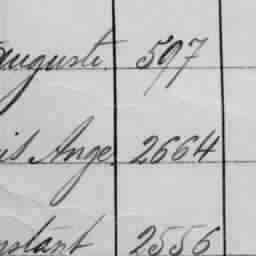 auguste. 597
is Ange. 2664
nstant 2556